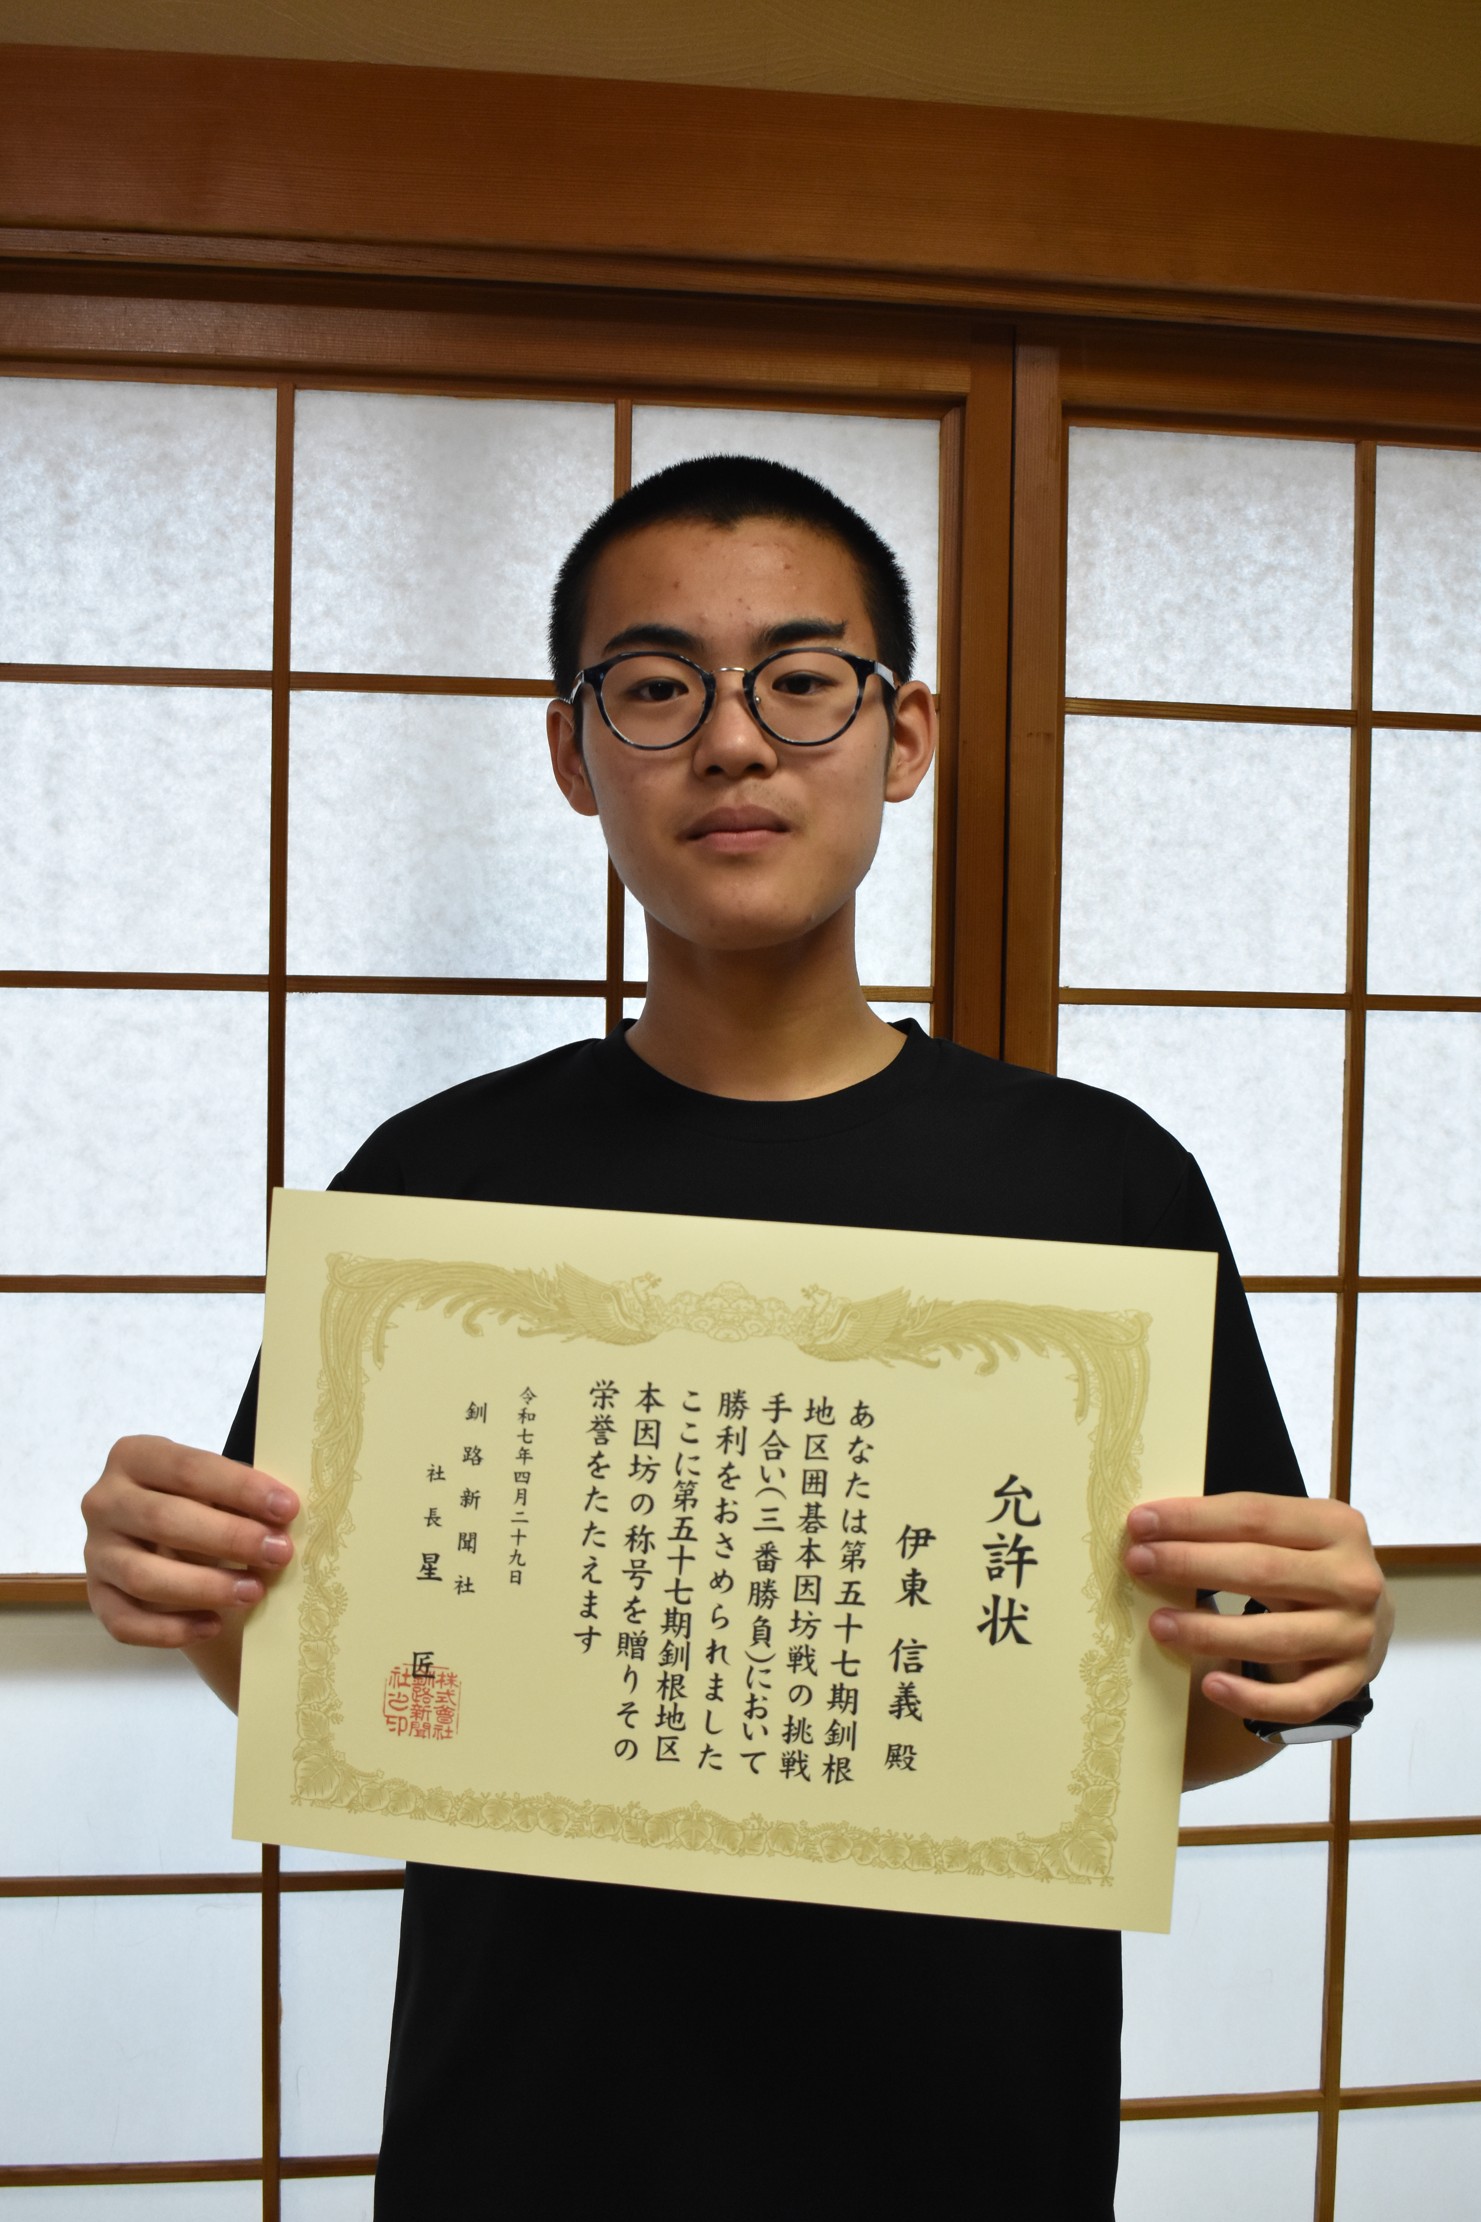 允許状
伊東 信義 殿
あなたは第五十七期釧根
地区囲碁本因坊戦の挑戦
手合い(三番勝負)において
勝利をおさめられました
ここに第五十七期釧根地区
本因坊の称号を贈りその
栄誉をたたえます
令和七年四月二十九日
釧路新聞社
社長 星 匠
株式會社
釧路新聞
社之印